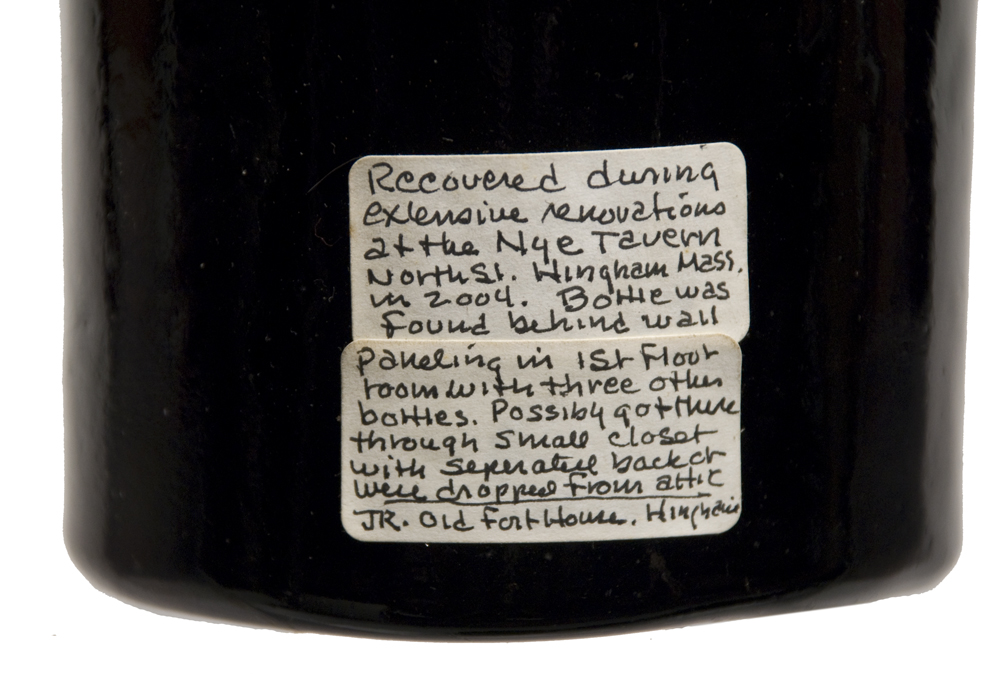 Recovered during
extensive renovations
at the Nye Tavern
North St. Hingham Mass.
in 2004. Bottle was
found behind wall
paneling in 1st Floor
room with three other
bottles. Possibly got there
through small closet
with seperated back or
were dropped from attic
JR. Old Fort House. Hingham